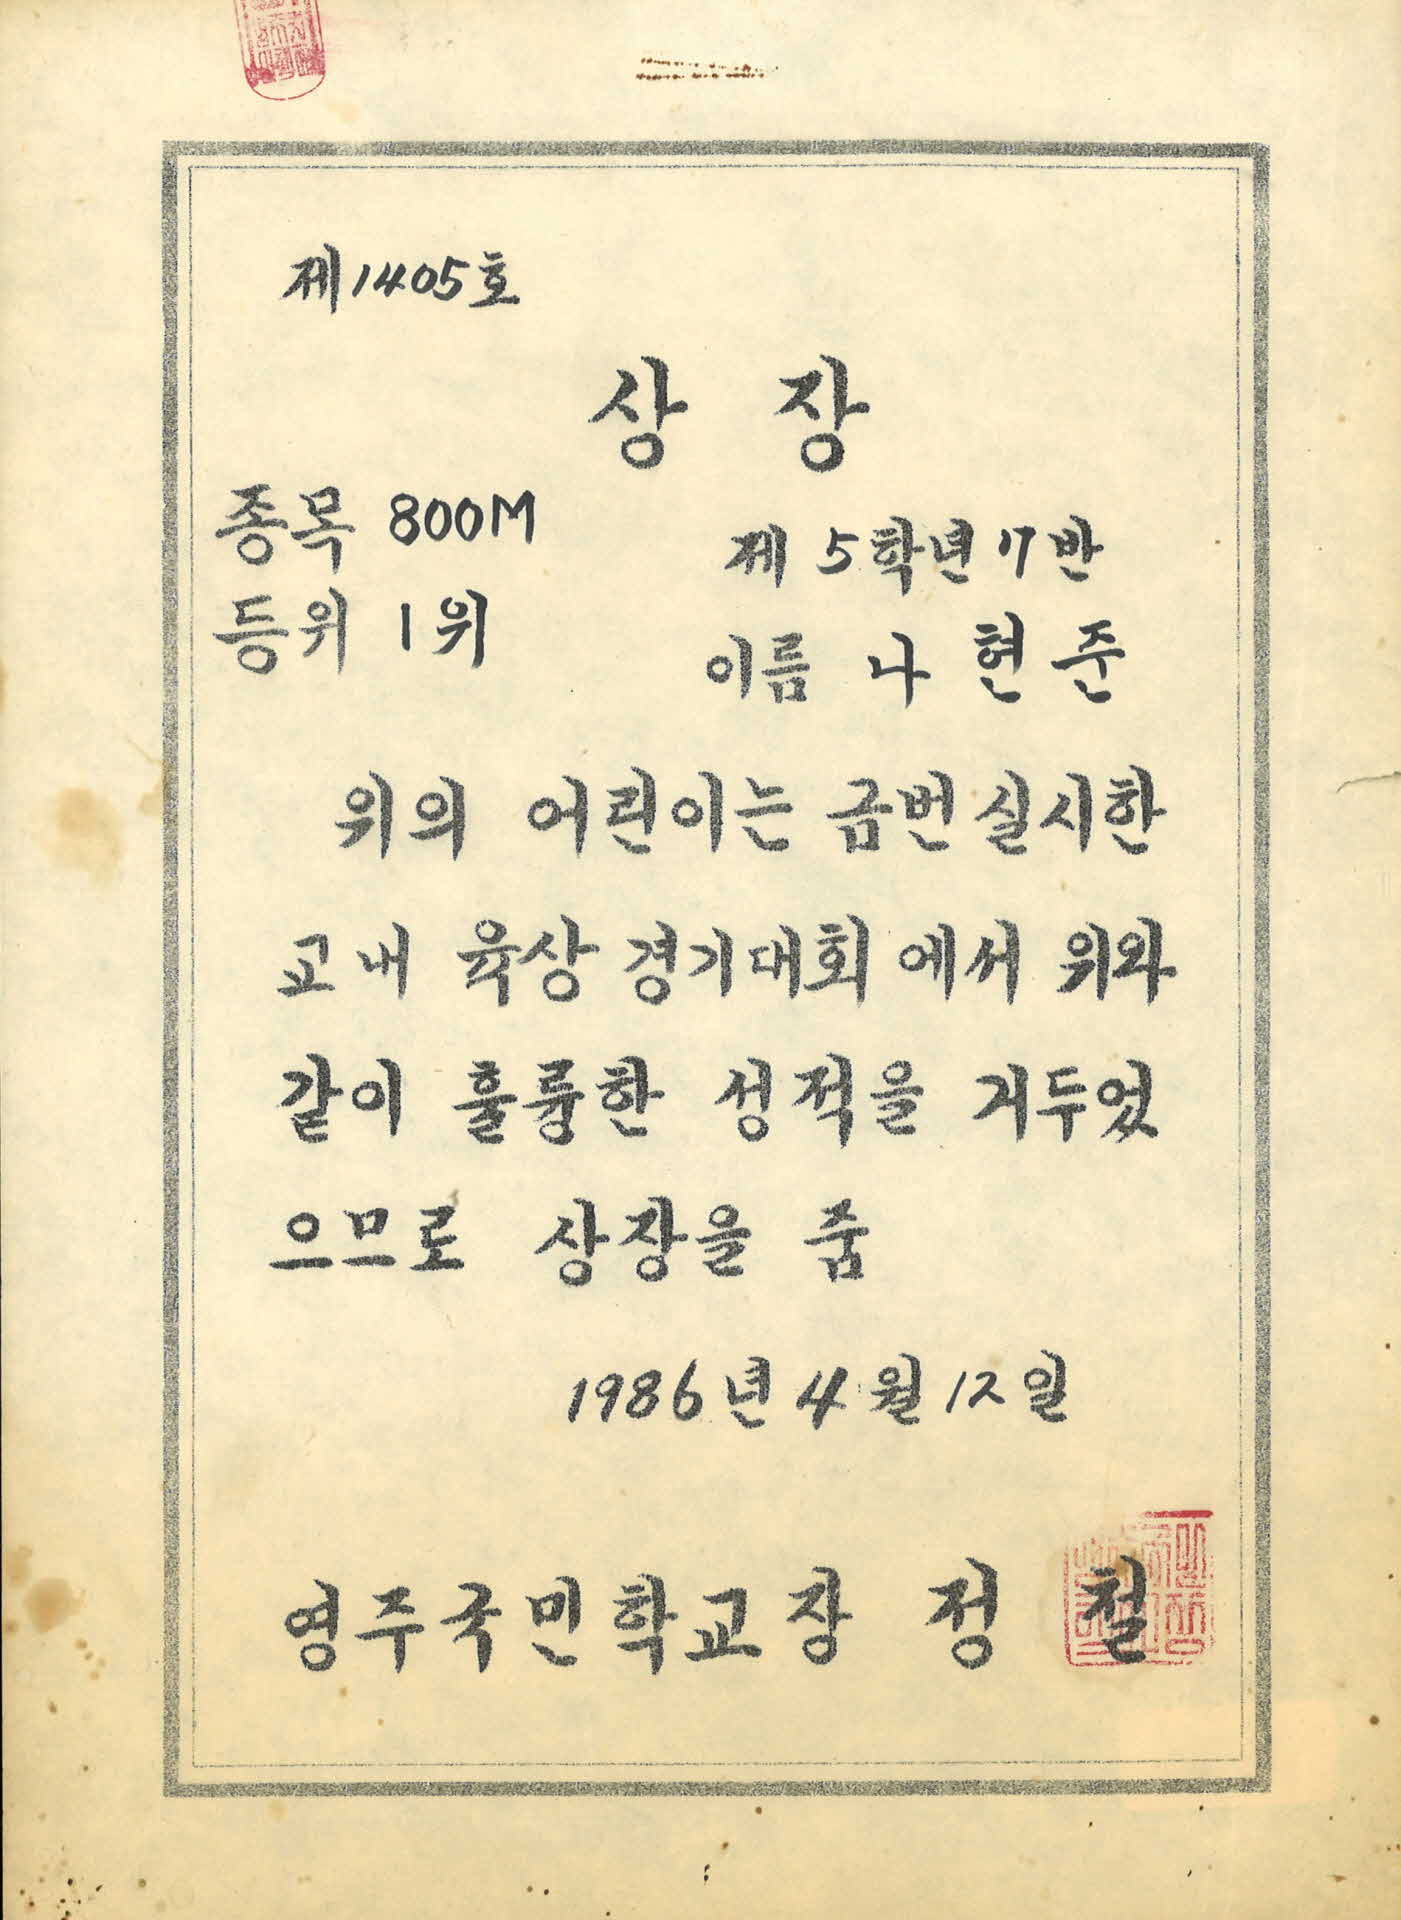 제1405호
상 장
종목 800M
등위 1위
제 5학년 17반
이름 나 현 준
위의 어린이는 금번 실시한
교내 육상 경기대회 에서 위와
같이 훌륭한 성적을 거두었
으므로 상장을 줌
1986년 4월 12일
영주국민학교장 정 철